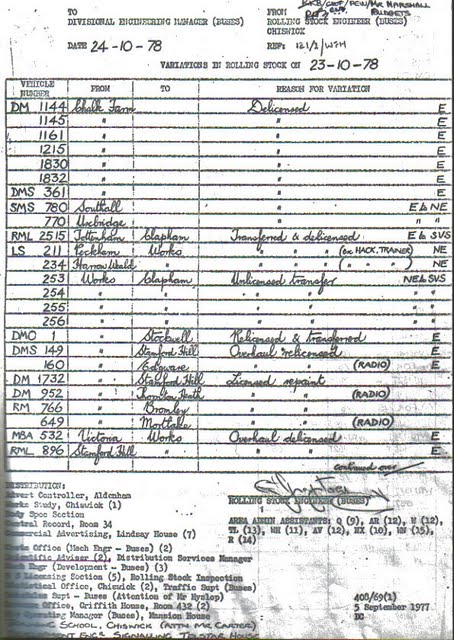 TO FROM
DIVISIONAL ENGINEERING MANAGER (BUSES) ROLLING STOCK ENGINEER (BUSES)
CHISWICK
DATE 24-10-78 REF: 121/2/WJH
VARIATIONS IN ROLLING STOCK ON 23-10-78
VEHICLE NUMBER FROM TO REASON FOR VARIATION
DM 1144 Chalk Farm Delicensed E
1145 " " E
1161 " " E
1215 " " E
1830 " " E
1832 " " E
DMS 361 " " E
SMS 780 Southall " E to NE
770 Uxbridge " " "
RML 2515 Tottenham Clapham Transferred & delicensed E to SVS
LS 211 Peckham Works " " " (ex HACK. TRAINER) NE
234 Harrow Weald " " " " ( " " ) NE
253 Works Clapham Unlicensed transfer NE to SVS
254 " " " " " "
255 " " " " " "
256 " " " " " "
DMO 1 " Stockwell Relicensed & transferred E
DMS 149 " Stamford Hill Overhaul relicensed E
160 " Edgware " " (RADIO) E
DM 1732 " Stamford Hill Licensed repaint
DM 952 " Thornton Heath " " (RADIO)
RM 766 " Bromley " "
649 " Mortlake " " (RADIO)
MBA 532 Victoria Works Overhaul delicensed E
RML 896 Stamford Hill " " " E
continued over
DISTRIBUTION:
Advert Controller, Aldenham
Works Study, Chiswick (1)
Body Spec Section
Central Record, Room 34
Commercial Advertising, Lindsay House (7)
Office (Mech Engr - Buses) (2)
Scientific Adviser (2), Distribution Services Manager
Engr (Development - Buses) (3)
Licensing Section (5), Rolling Stock Inspection
Office, Chiswick (2), Traffic Supt (Buses)
Supt - Buses (Attention of Mr Hyslop)
Office, Griffith House, Room 432 (2)
Operating Manager (Buses), Mansion House
SCHOOL, CHISWICK (ATTN MR CARTER)
ENGR SIGNALLING, TELSTAR HOUSE
ROLLING STOCK ENGINEER (BUSES)
AREA ADMIN ASSISTANTS: Q (9), AR (12), W (12),
TL (13), WH (11), AV (12), HX (10), WN (15),
R (14)
400/69(1)
5 September 1977
DC